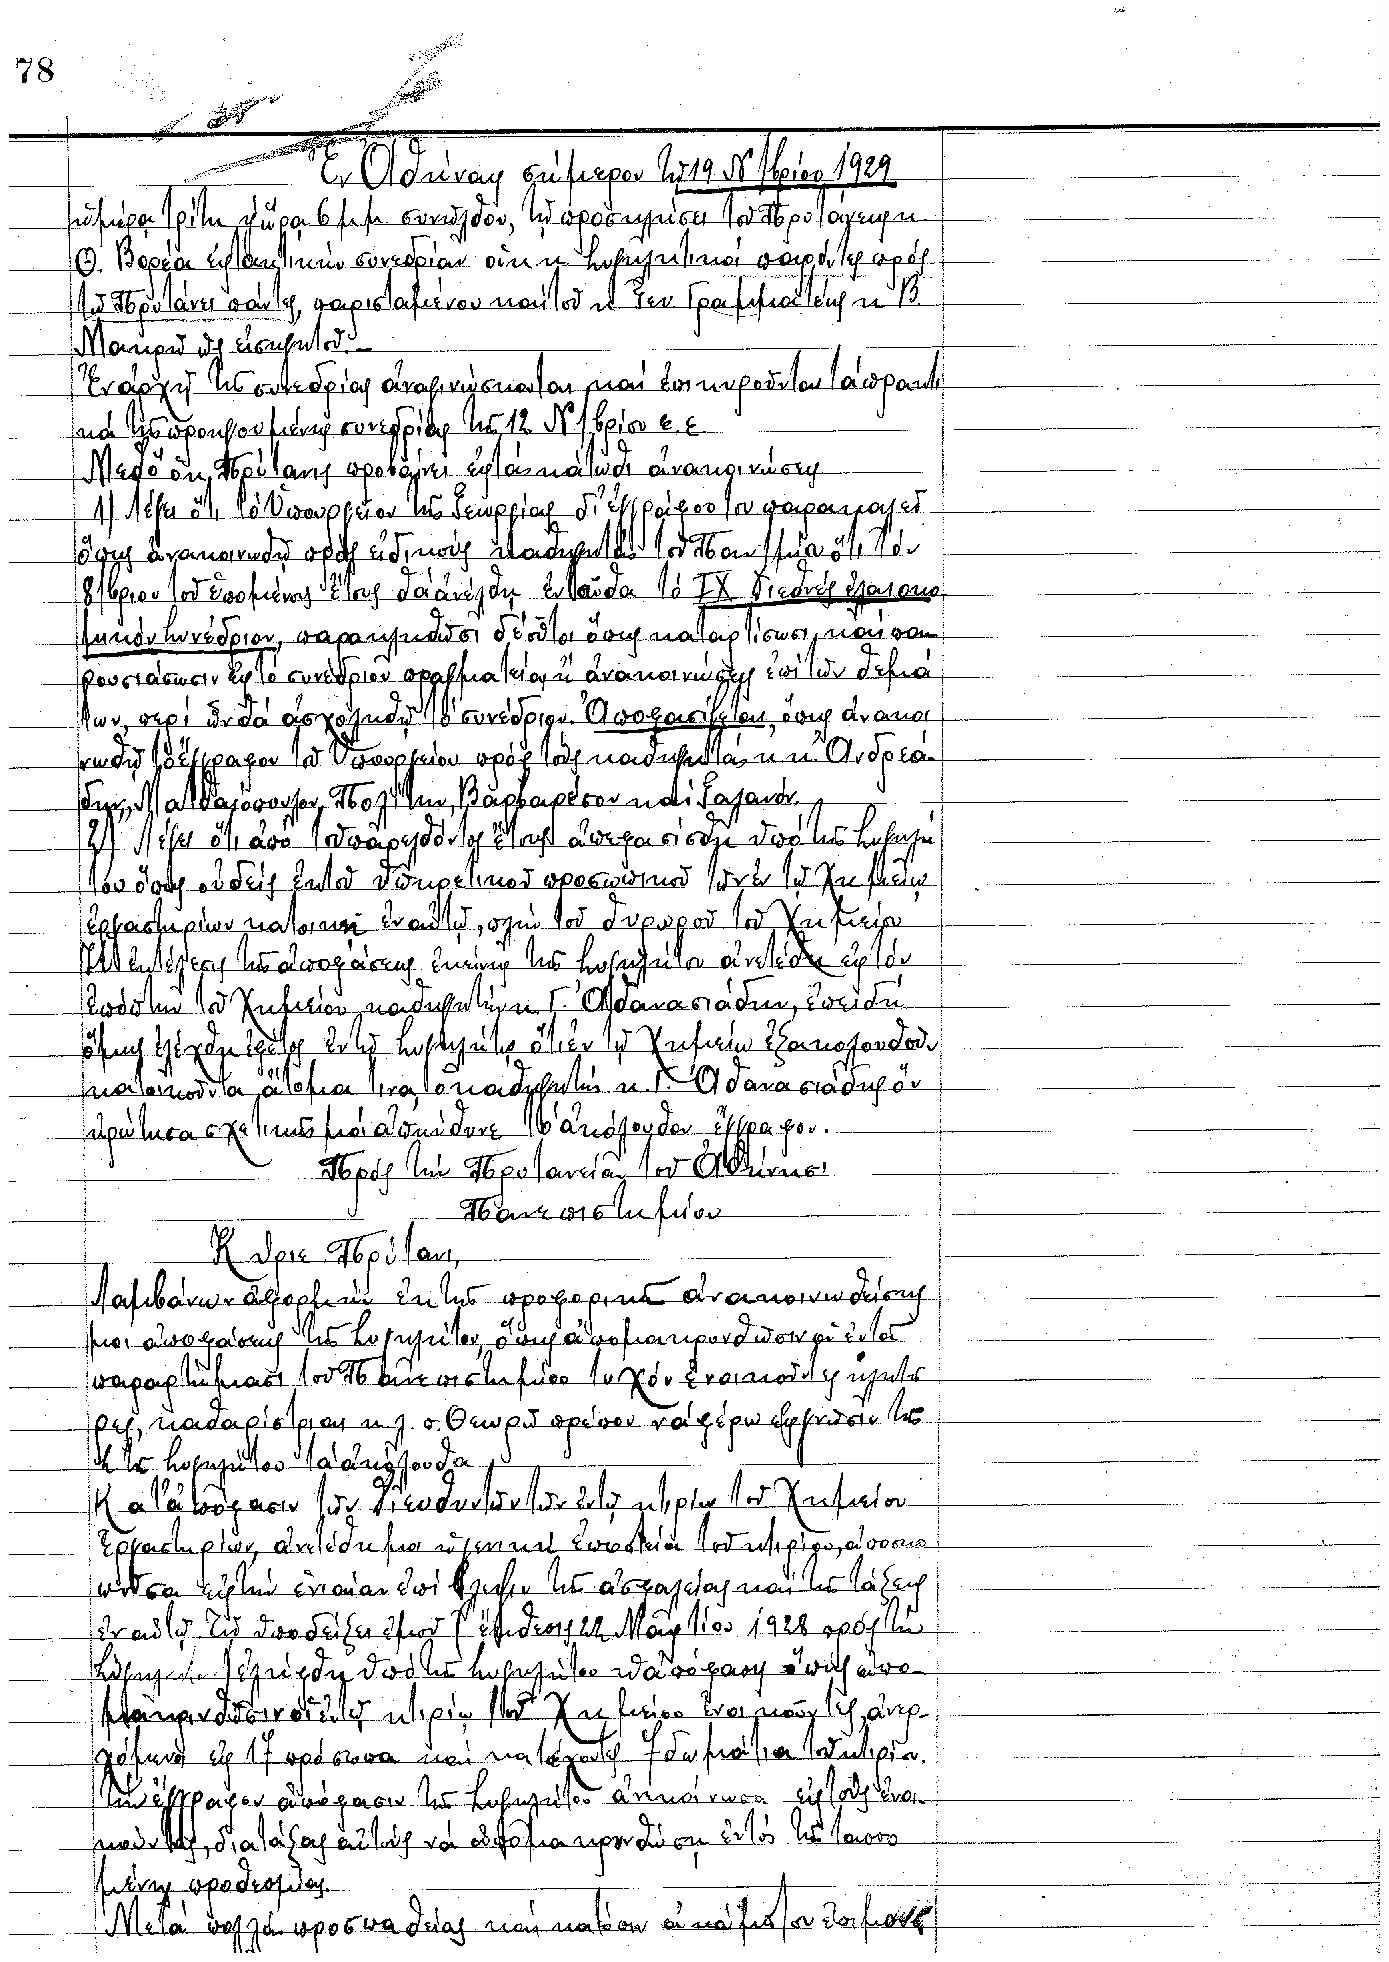 78
Ἐν Ἀθήναις σήμερον τῇ 19 Ν/βρίου 1929
ἡμέρᾳ Τρίτῃ καὶ ὥρᾳ 6 μ.μ. συνῆλθον, τῇ προσκλήσει τοῦ Πρυτάνεως κ.
Θ. Βορέα εἰς τακτικὴν συνεδρίαν οἱ κ. κ. Συγκλητικοὶ παρόντες πρὸς
τῷ Πρυτάνει πάντες, παρισταμένου καὶ τοῦ κ. Γεν. Γραμματέως κ. Β.
Μακρῆ ὡς εἰσηγητοῦ.—
Ἐν ἀρχῇ τῆς συνεδρίας ἀναγινώσκονται καὶ ἐπικυροῦνται τὰ πρακτι
κὰ τῆς προηγουμένης συνεδρίας τῆς 12 Ν/βρίου ἐ.ἔ.
Μεθ' ὃ ὁ κ. Πρύτανις προβαίνει εἰς τὰς κάτωθι ἀνακοινώσεις
1) Λέγει ὅτι τὸ Ὑπουργεῖον τῆς Γεωργίας δι' ἐγγράφου του παρακαλεῖ
ὅπως ἀνακοινωθῇ πρὸς εἰδικοὺς καθηγητὰς τοῦ Παν/μίου ὅτι τὸν
8/βριον τοῦ ἑπομένου ἔτους θὰ συνέλθῃ ἐνταῦθα τὸ IX Διεθνὲς ἐλαιοκο
μικὸν συνέδριον, παρακληθῶσι δ' οὗτοι ὅπως καταρτίσωσι καὶ πα
ρουσιάσωσιν εἰς τὸ συνέδριον πραγματείας ἢ ἀνακοινώσεις ἐπὶ τῶν θεμά
των, περὶ ὧν θὰ ἀσχοληθῇ τὸ συνέδριον. Ἀποφασίζεται, ὅπως ἀνακοι
νωθῇ τὸ ἔγγραφον τοῦ Ὑπουργείου πρὸς τοὺς καθηγητὰς κ. κ. Ἀνδρεά-
δην, Μαθαιόπουλον, Πολίτην, Βαρβαρέσον καὶ Γαλανόν.
2) Λέγει ὅτι ἀπὸ τοῦ παρελθόντος ἔτους ἀπεφασίσθη ὑπὸ τῆς Συγκλή
του ὅπως οὐδεὶς ἐκ τοῦ ὑπηρετικοῦ προσωπικοῦ τῶν ἐν τῷ Χημείῳ
ἐργαστηρίων κατοικῇ ἐν αὐτῷ, πλὴν τοῦ θυρωροῦ τοῦ Χημείου
Ἡ ἐκτέλεσις τῆς ἀποφάσεως ἐκείνης τῆς Συγκλήτου ἀνετέθη εἰς τὸν
ἐπόπτην τοῦ Χημείου καθηγητὴν κ. Γ. Ἀθανασιάδην, ἐπειδὴ
ὅμως ἐλέχθη ἐφέτος ἐν τῇ Συγκλήτῳ ὅτι ἐν τῷ Χημείῳ ἐξακολουθοῦν
κατοικοῦντα ἄτομά τινα, ὁ καθηγητὴς κ. Γ. Ἀθανασιάδης ὃν
ἠρώτησα σχετικῶς μοὶ ἀπηύθυνε τὸ ἀκόλουθον ἔγγραφον.
Πρὸς τὴν Πρυτανείαν τοῦ Ἀθήνησι
Πανεπιστημίου
Κύριε Πρύτανι,
Λαμβάνων ἀφορμὴν ἐκ τῆς προφορικῶς ἀνακοινωθείσης
μοι ἀποφάσεως τῆς Συγκλήτου, ὅπως ἀπομακρυνθῶσιν οἱ ἐν τοῖς
παραρτήμασι τοῦ Πανεπιστημίου τυχὸν ἐνοικοῦντες κλητῆ
ρες, καθαρίστριαι κ.λ.π. Θεωρῶ πρέπον νὰ φέρω εἰς γνῶσιν τῆς
Συγκλήτου τὰ ἀκόλουθα
Κατ' ἀπόφασιν τῶν Διευθυντῶν τῶν ἐν τῷ κτιρίῳ τοῦ Χημείου
Ἐργαστηρίων, ἀνετέθη μοι ἡ γενικὴ ἐποπτεία τοῦ κτιρίου, ἀποσκο
ποῦσα εἰς τὴν ἑνιαίαν ἐπίβλεψιν τῆς ἀσφαλείας καὶ τῆς τάξεως
ἐν αὐτῷ. Τῇ ὑποδείξει ἐμοῦ (ἔκθεσις 22 Μαρτίου 1928 πρὸς τὴν
Σύγκλητον) ἐλήφθη ὑπὸ τῆς Συγκλήτου ἡ ἀπόφασις ὅπως ἀπο-
μακρυνθῶσιν οἱ ἐν τῷ κτιρίῳ τοῦ Χημείου ἐνοικοῦντες, ἀνερ-
χόμενοι εἰς 17 πρόσωπα καὶ κατέχοντες 7 δωμάτια τοῦ κτιρίου.
Τὴν ἔγγραφον ἀπόφασιν τῆς Συγκλήτου ἀνεκοίνωσα εἰς τοὺς ἐνοι-
κοῦντας, διατάξας αὐτοὺς νὰ ἀπομακρυνθῶσιν ἐντὸς τῆς τασσο
μένης προθεσμίας.
Μετὰ πολλὰς προσπαθείας καὶ κατόπιν